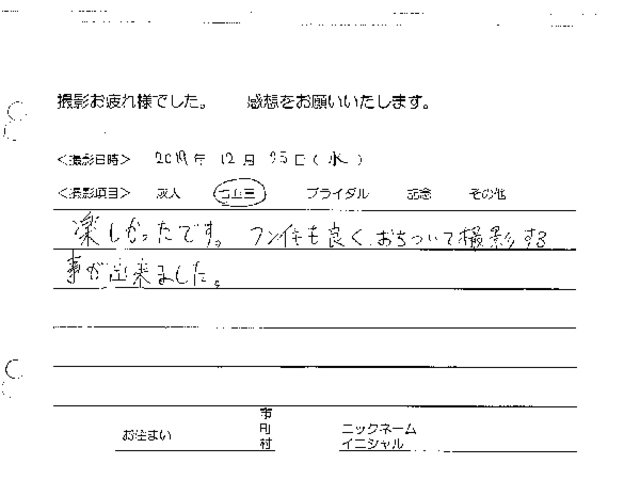 撮影お疲れ様でした。 感想をお願いいたします。
<撮影日時> 2019年 12月 25日(水)
<撮影項目> 成人 七五三 ブライダル 記念 その他
楽しかったです。フン任も良く、おちついて撮影する
事が出来ました。
市
町
村
お住まい
ニックネーム
イニシャル